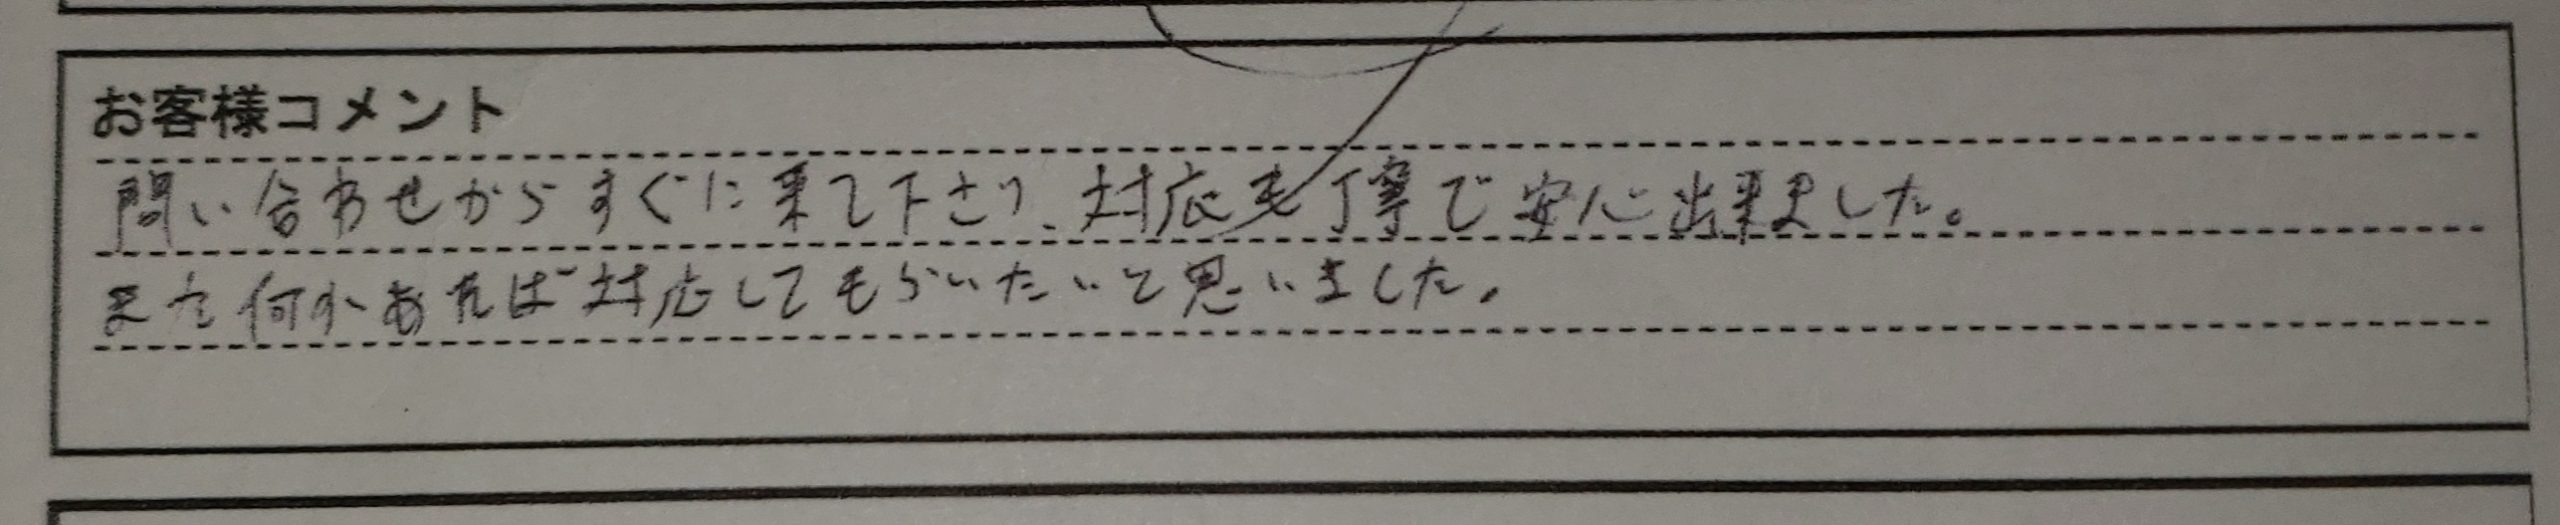 お客様コメント
問い合わせからすぐに来て下さり、対応も丁寧で安心出来ました。
また何かあれば対応してもらいたいと思いました。